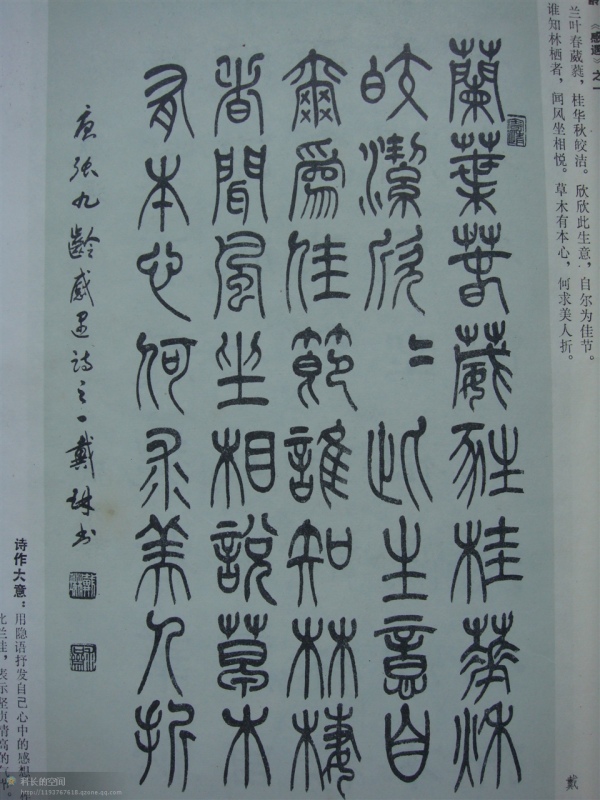 《感遇》之一
兰叶春葳蕤，桂华秋皎洁。欣欣此生意，自尔为佳节。
谁知林栖者，闻风坐相悦。草木有本心，何求美人折。
戴
蘭葉春葳蕤桂華秋
皎潔欣〻此生意自
爾為佳節誰知林棲
者聞風坐相說草木
有本心何求美人折
唐張九齡感遇诗之一戴琳书
诗作大意：用隐语抒发自己心中的感想
比兰桂，表示坚贞清高的气节。
科长的空间
http://1193767618.qzone.qq.com